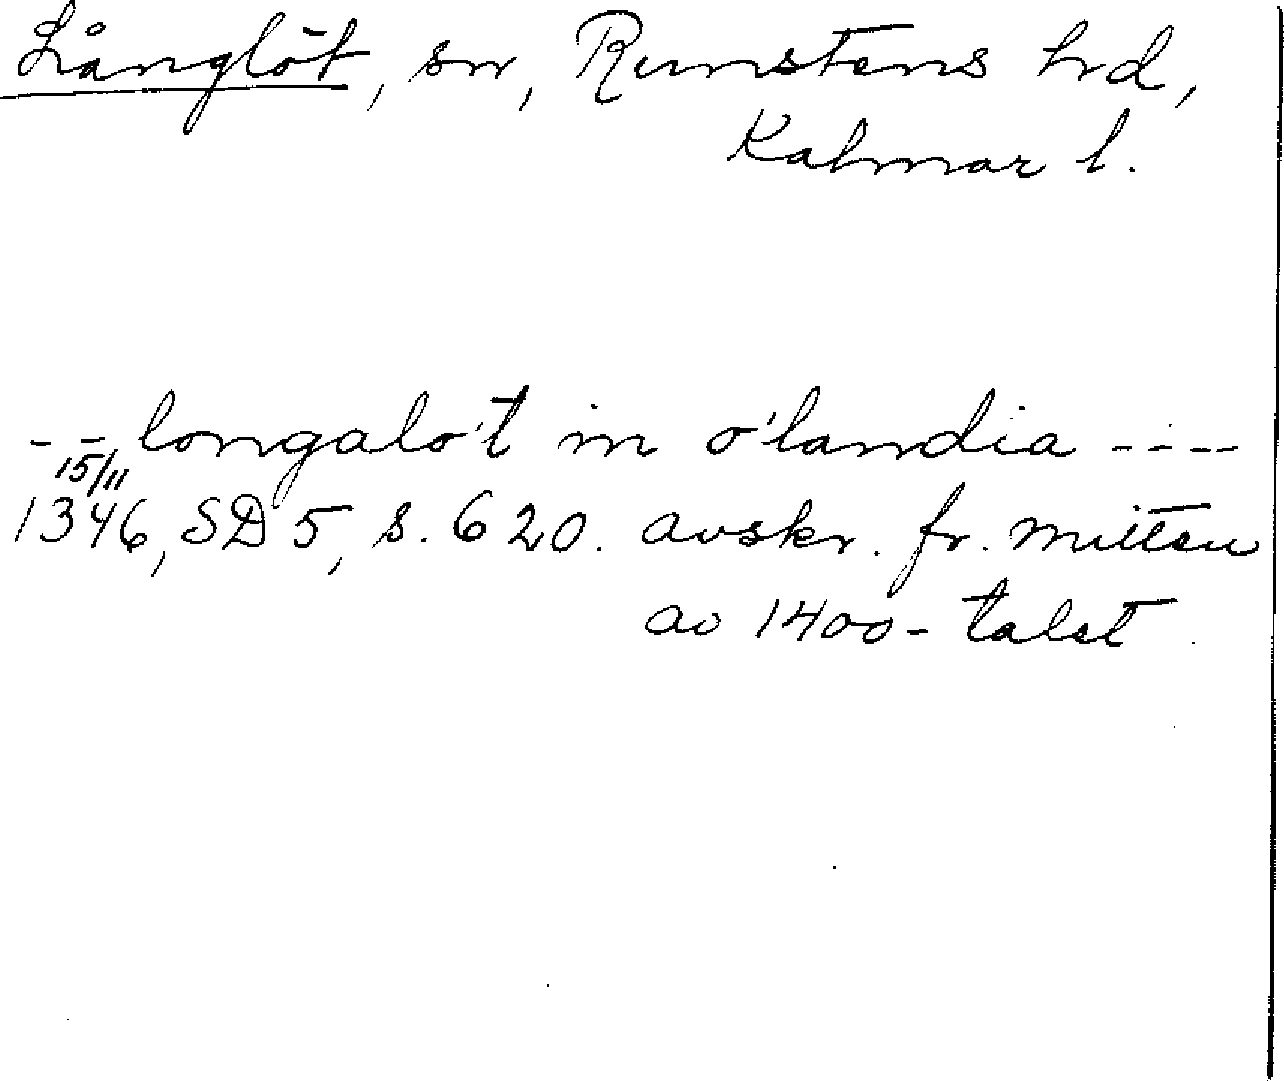 Långlöt, sn, Runstens hrd,
Kalmar l.
- - longalo't in o'landia - - -
15/11
1346, SD 5, s. 620. avskr. fr. mitten
av 1400-talet